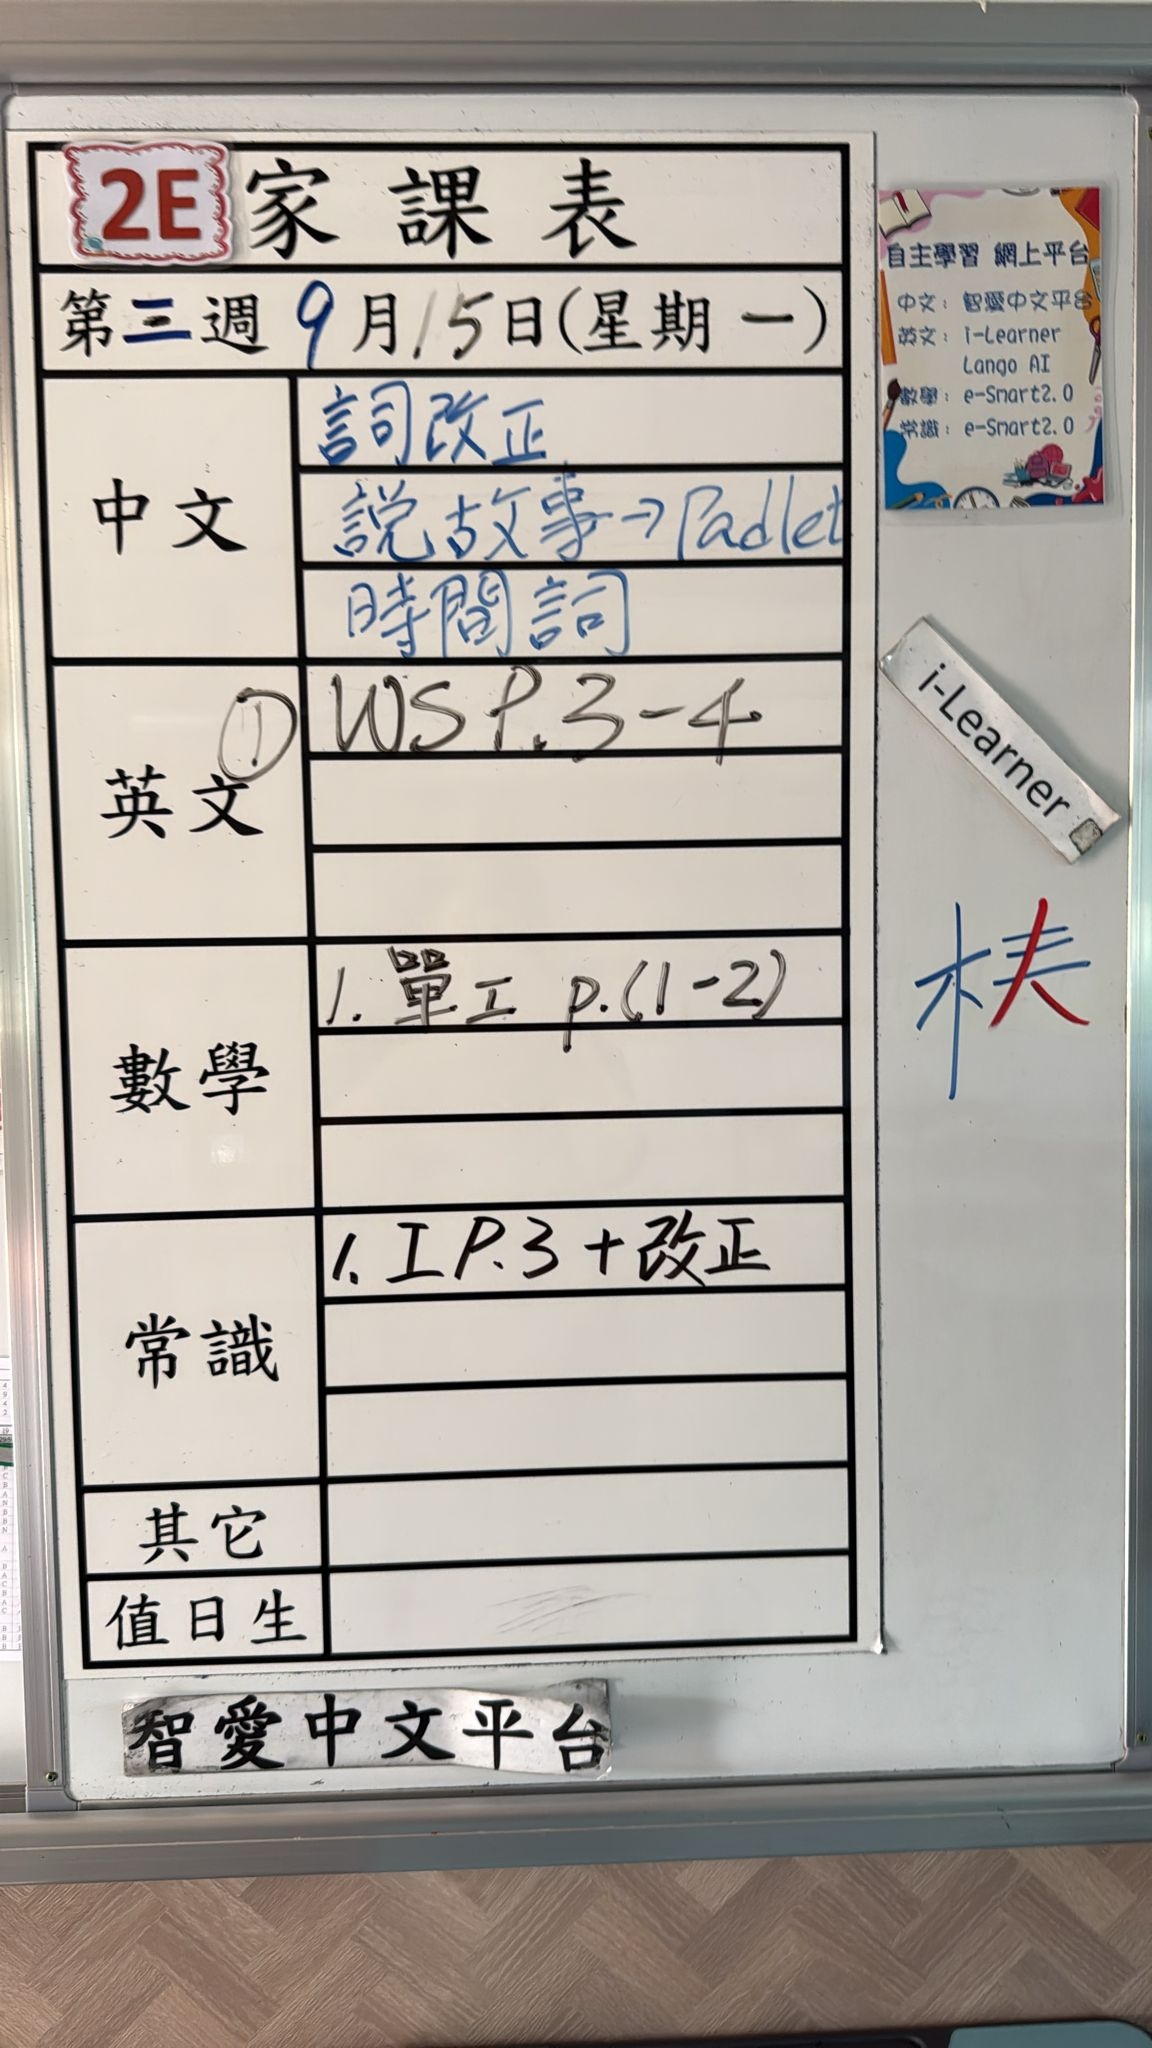 2E 家課表
第三週 9月15日(星期一)
中文
詞改正
說故事→Padlet
時間詞
英文
① WS P.3-4
數學
1. 單工 p.(1-2)
常識
1. 工 P.3 + 改正
其它
值日生
智愛中文平台
自主學習 網上平台
中文：智愛中文平台
英文：i-Learner
Lango AI
數學：e-Smart2.0
常識：e-Smart2.0
i-Learner